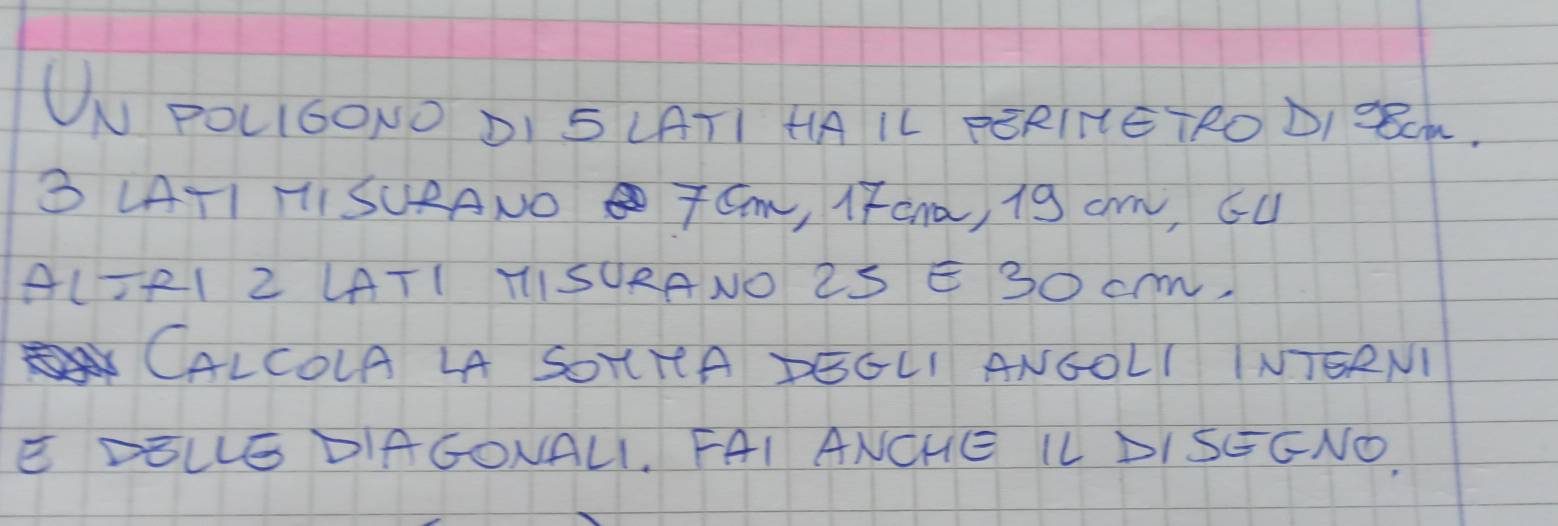 UN POLIGONO DI 5 LATI HA IL PERIMETRO DI 98cm.
3 LATI MISURANO 7cm, 17cm, 19 cm, GLI
ALTRI 2 LATI MISURANO 25 E 30 cm.
CALCOLA LA SOMMA DEGLI ANGOLI INTERNI
E DELLE DIAGONALI. FAI ANCHE IL DISEGNO.